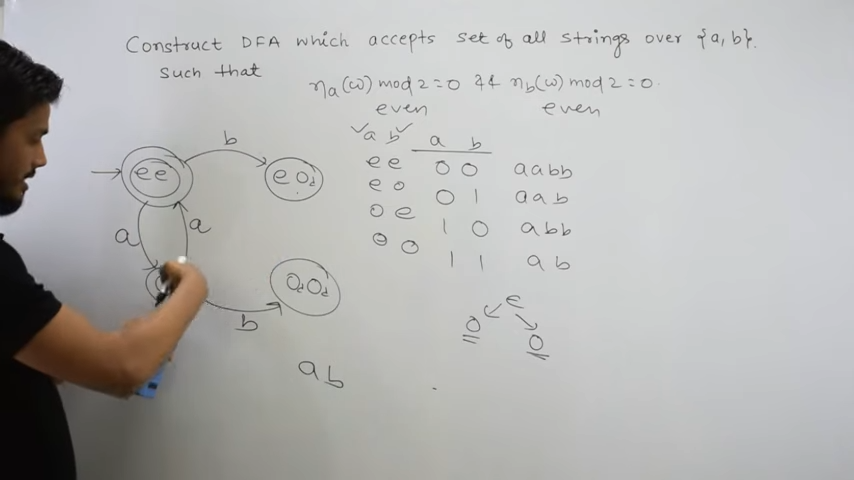 Construct DFA which accepts set of all strings over {a, b}.
such that
ηa(ω) mod 2 = 0 && ηb(ω) mod 2 = 0.
even even
✓a b✓ a b
ee 00 aabb
eo 01 aab
oe 10 abb
oo 11 ab
b
ee
eod
a a
odod
b
e
o
o
ab